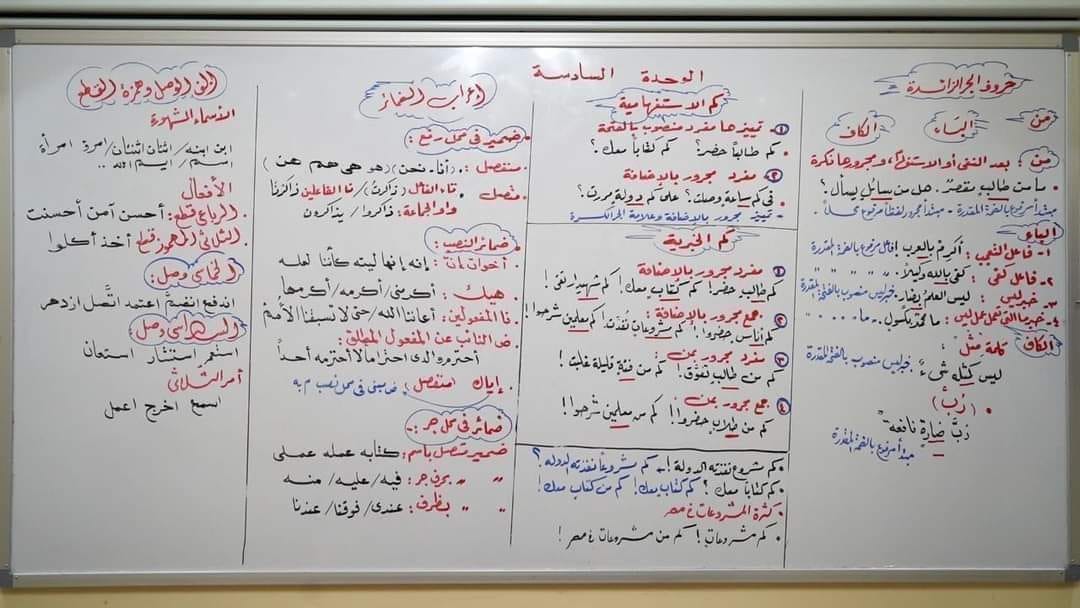 الوحدة السادسة
حروف الجر الزائدة
من الباء الكاف
من بعد النفى أو الاستفهام، ومجرورها نكرة
ما من طالبٍ مقصرٌ. هل من سائلٍ يسأل؟
مبتدأ مرفوع بالضمة المقدرة - مبتدأ مجرور لفظاً مرفوع محلاً.
الباء
١- فاعل التعجب: أكرمْ بالعربِ! فاعل مرفوع بالضمة المقدرة
٢- فاعل كفى: كفى بالله وكيلاً. " " " " "
٣- خبر ليس: ليس العلمُ بضارٍ. خبر ليس منصوب بالفتحة المقدرة
٤- خبر ما التى تعمل عمل ليس: ما محمدٌ بكسولٍ. - ما
الكاف كلمة مثل:
ليس كمثلِه شىءٌ خبر ليس منصوب بالفتحة المقدرة
• (رُبَّ)
رُبَّ ضارةٍ نافعة"
مبتدأ مرفوع بالضمة المقدرة
كم الاستفهامية
١- تمييزها مفرد منصوب بالفتحة
• كم طالباً حضر؟ كم كتاباً معك؟.
٢ مفرد مجرور بالإضافة
فى كم ساعةٍ وصلت؟ على كم دولةٍ مررت؟
- تمييز مجرور بالإضافة وعلامة الجر الكسرة
كم الخبرية
١ مفرد مجرور بالإضافة
كم طالبٍ حضر! كم كتابٍ معك! كم شهيدٍ ارتقى!
٢ جمع مجرور بالإضافة:
كم أناسٍ حضروا! كم مشروعاتٍ نُفذت! كم معلمين شرحوا!
٣ مفرد مجرور بمن:
كم من طالبٍ تفوق! كم من فئةٍ قليلة غلبت!
٤ جمع مجرور بمن:
كم من طلابٍ حضروا! كم من معلمين شرحوا!
• كم مشروع نفذته الدولة! - كم مشروعاً نفذته الدولة؟
• كم كتاباً معك؟ كم كتابٍ معك! كم من كتاب معك!
• كثرة المشروعات فى مصر
• كم مشروعاتٍ! كم من مشروعات فى مصر!
إعراب الضمائر
ضمير فى محل رفع:
منفصل: (أنا - نحن) (هو هى هم هن)
متصل: تاء الفاعل (ذاكرتُ) / نا الفاعلين ذاكرْنا
واو الجماعة: ذاكروا / يذاكرون
ضمائر النصب:
. أخوات إنَّ: إنه إنها ليته كأننا لعله
. هيك: أكرمنى / أكرمه / أكرمها
. نا المفعولين: أعاننا الله / حتى لا تسبقنا الأمم
. ض النائب عن المفعول المطلق:
أحترم والدى احتراما لا أحترمه أحداً
. إياك منفصل: ض مبنى فى محل نصب م به
ضمائر فى محل جر:
ضمير متصل باسم: كتابه عمله عملى
" " بحرف جر: فيه / عليه / منه
" " بظرف: عندى / فوقنا / عندنا
ألف الوصل وهمزة القطع
الأسماء المشهورة
ابن ابنه / اثنان اثنتان / امرؤ امرأة
اسم / ايم الله ..
الأفعال
. الرباعى قطع: أحسن آمن أحسنت
. الثلاثى المهموز قطع أخذ أكلوا
الخماسى وصل:
اندفع انضمَّ اعتمد اتَّصل ازدهر
السداسى وصل
استعمر استشار استعان
أمر الثلاثى
اسمع اخرج اعمل